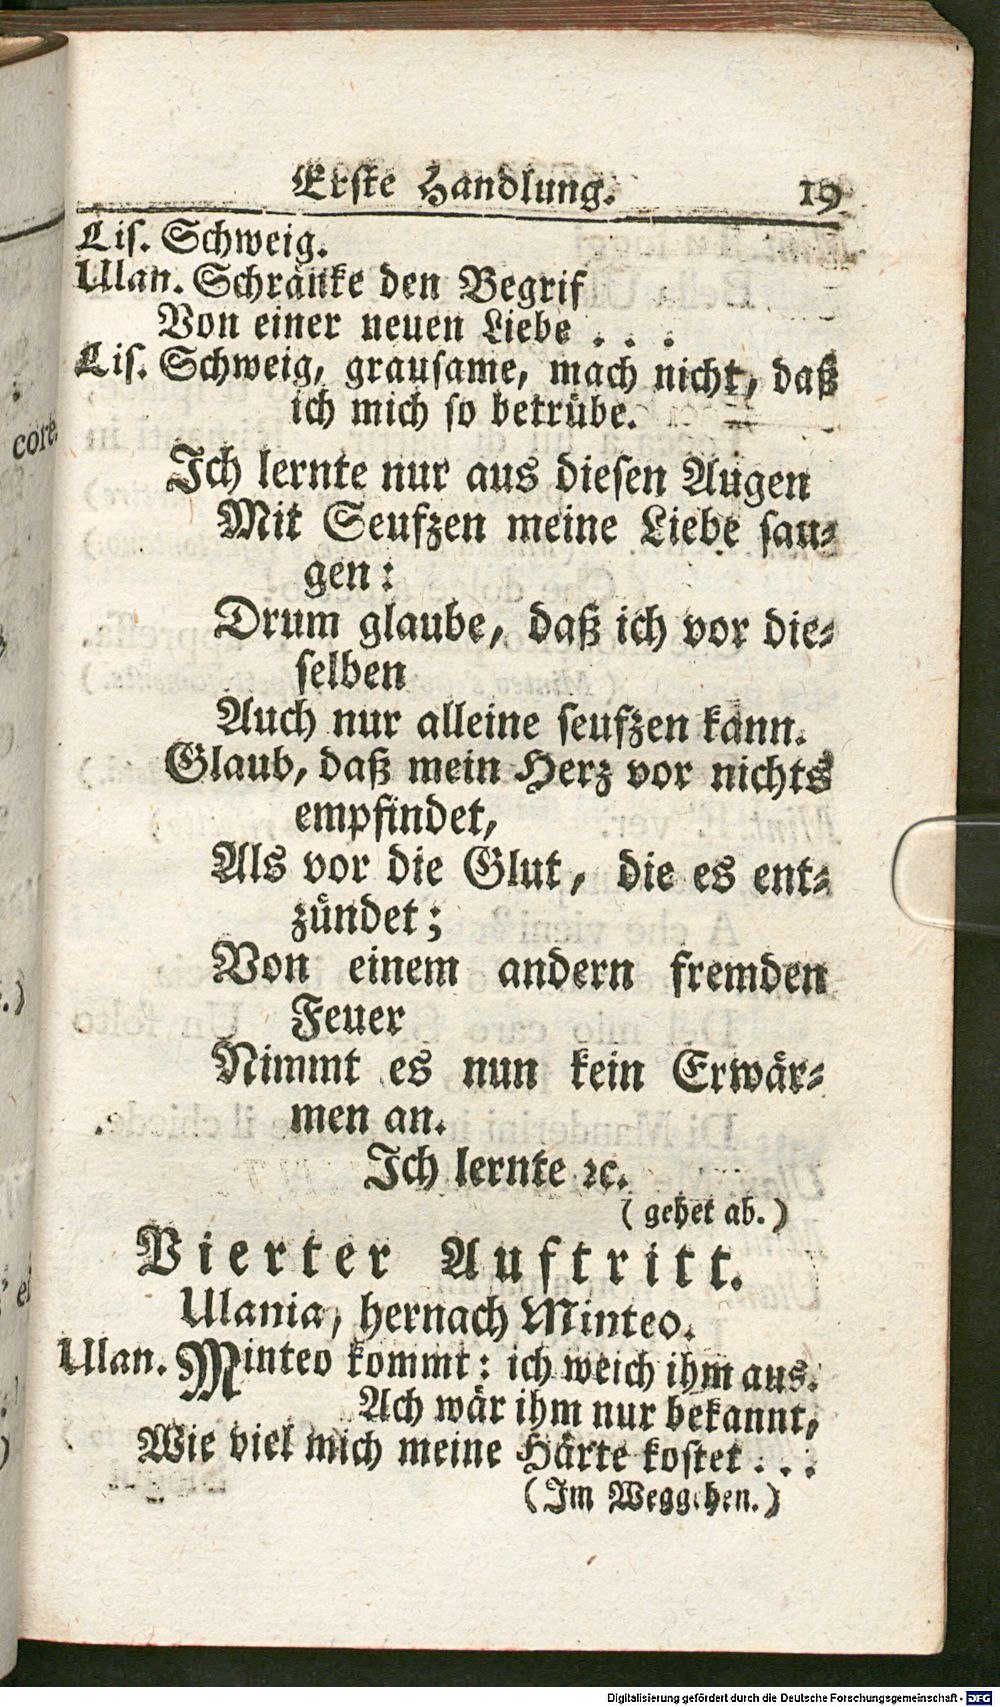 Erste Handlung. 19
Lis. Schweig.
Ulan. Schränke den Begrif
Von einer neuen Liebe . . .
Lis. Schweig, grausame, mach nicht, daß
ich mich so betrübe.
Ich lernte nur aus diesen Augen
Mit Seufzen meine Liebe sau-
gen:
Drum glaube, daß ich vor die-
selben
Auch nur alleine seufzen kann.
Glaub, daß mein Herz vor nichts
empfindet,
Als vor die Glut, die es ent-
zündet;
Von einem andern fremden
Feuer
Nimmt es nun kein Erwär-
men an.
Ich lernte ꝛc.
(gehet ab.)
Vierter Auftritt.
Ulania, hernach Minteo.
Ulan. Minteo kommt: ich weich ihm aus.
Ach wär ihm nur bekannt,
Wie viel mich meine Härte kostet . . .
(Im Weggehen.)
core.
Digitalisierung gefördert durch die Deutsche Forschungsgemeinschaft - DFG